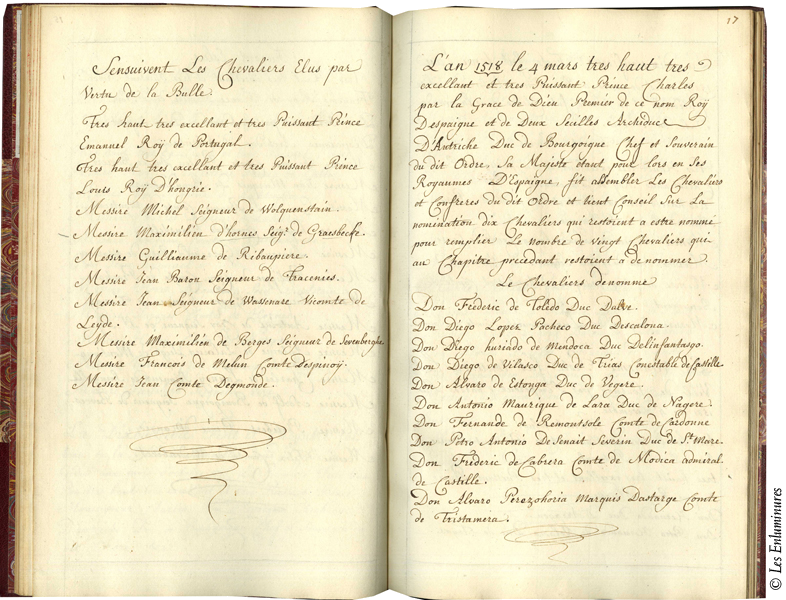 Sensuivent Les Chevaliers Elus par
Vertu de la Bulle.
Tres haut tres excellant et tres Puissant Prince
Emanuel Roÿ de Portugal.
Tres haut tres excellant et tres Puissant Prince
Louis Roÿ D'hongrie.
Messire Michel Seigneur de Wolquenstain.
Messire Maximilien d'hornes Seigr. de Graesbecke.
Messire Guilliaume de Ribaupiere.
Messire Jean Baron Seigneur de Tracenies.
Messire Jean Seigneur de Wassenare Vicomte de
Leyde.
Messire Maximilien de Berges Seigneur de Sevenberghe
Messire Francois de Melun Comte Lespinoÿ.
Messire Jean Comte Degmonde.
17
L'an 1518 le 4 mars tres haut tres
excellant et tres Puissant Prince Charles
par la Grace de Dieu Premier de ce nom Roÿ
Despaigne et de Deux Secilles Archiduc
D'Autriche Duc de Bourgoigne Chef et Souverain
du dit Ordre, Sa Majeste etant pour lors en Ses
Royaumes D'Espaigne, fit assembler Les Chevaliers
et Confreres du dit Ordre et tient Conseil Sur La
nomination dix Chevaliers qui restoient a estre nommé
pour remplier Le nombre de vingt Chevaliers qui
au Chapitre precedant restoient a denommer.
Le Chevaliers denomme
Don Frederic de Toledo Duc Dalve.
Don Diego Loper Pacheco Duc Descalona.
Don Diego huriado de Mendoca Duc Delinfantasgo.
Don Diego de Vilasco Duc de Trias Conestable de Castille
Don Alvaro de Estonga Duc de Vegere.
Don Antonio Maurique de Lara Duc de Nagere.
Don Fernande de Remontssole Comte de Cardonne
Don Petro Antonio De Senait Severin Duc de St. Mare.
Don Frideric de Cabrera Comte de Modica admiral
de Castille.
Don Alvaro Perezohoria Marquis Dastarge Comte
de Tristamera.
© Les Enluminures